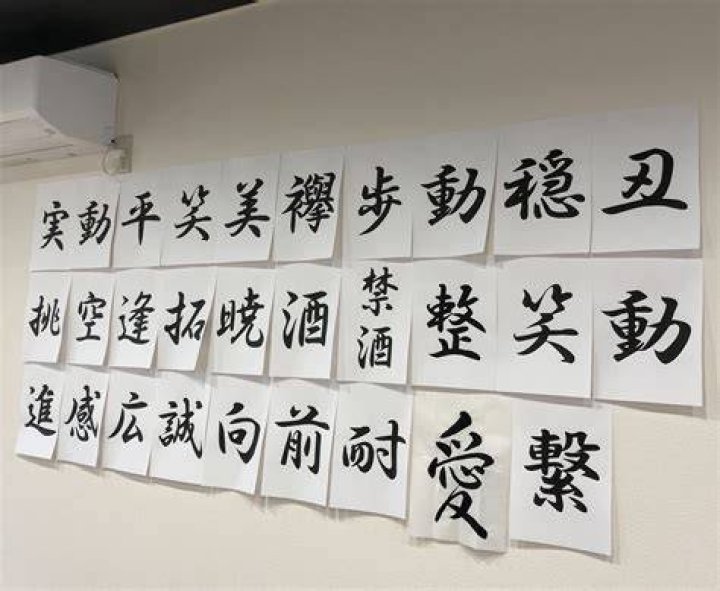 実動平笑美襷歩動穏丑
挑空逢拓暁酒禁酒整笑動
進感広誠向前耐愛繋